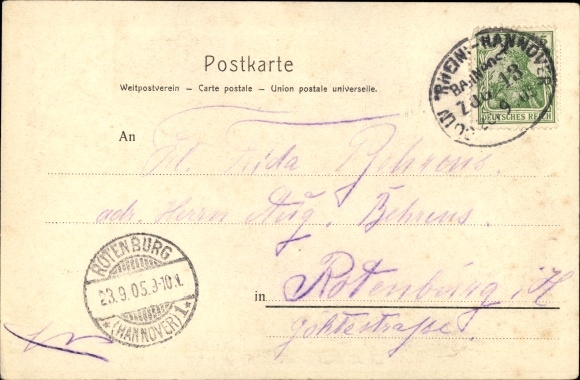 Postkarte
Weltpostverein – Carte postale – Union postale universelle.
RHEINE-HANNOVER
BAHNPOST
ZUG 13
9
DEUTSCHES REICH
An
Frl. Frida Behrens.
adr. Herrn Aug. Behrens.
in Rotenburg i/H
ROTENBURG
23.9.05.9-10V.
*(HANNOVER)1*